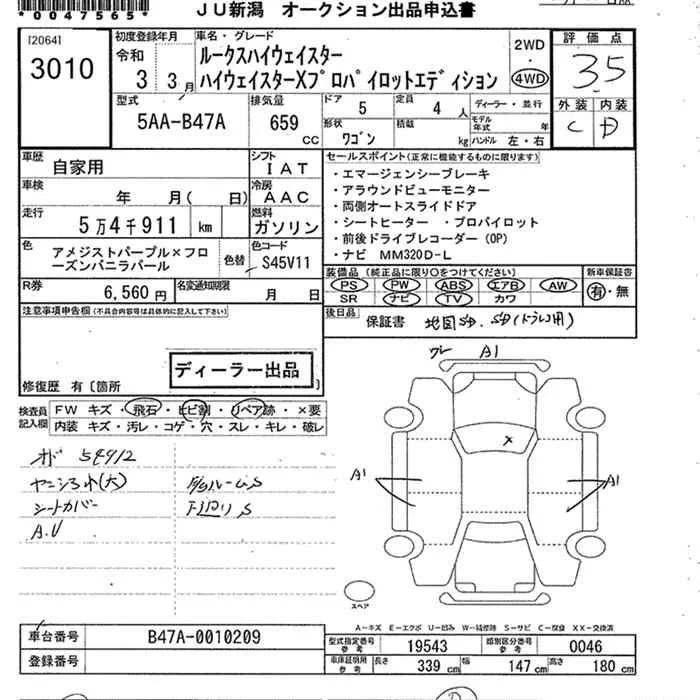 *0047565*
JU新潟 オークション出品申込書
[2064]
3010
初度登録年月
令和
3 3月
車名・グレード
ルークスハイウェイスター
ハイウェイスターXプロパイロットエディション
2WD
・
4WD
評価点
3.5
外装 内装
C D
型式
5AA-B47A
排気量
659
CC
ドア
5
定員
4 人
形状
ワゴン
積載
kg
ディーラー・並行
モデル年式 年
ハンドル 左・右
車歴
自家用
シフト
IAT
車検
年 月(日)
冷房
AAC
走行
5万4千911 km
燃料
ガソリン
色
アメジストパープル×フローズンバニラパール
色替
色コード
S45V11
R券
6,560円
名変通知期限
月 日
セールスポイント(正常に機能するものに限ります)
・エマージェンシーブレーキ
・アラウンドビューモニター
・両側オートスライドドア
・シートヒーター ・プロパイロット
・前後ドライブレコーダー(OP)
・ナビ MM320D-L
装備品(純正品に限り○をつけてください)
PS PW ABS エアB AW
SR ナビ TV カワ
新車保証書
有・無
後日品
保証書 地図SD、SD(ドラレコ用)
注意事項申告欄(不具合内容等は具体的に記入して下さい)
ディーラー出品
修復歴 有〔箇所
検査員記入欄
FW キズ・飛石・ヒビ割・リペア跡・×要
内装 キズ・汚レ・コゲ・穴・スレ・キレ・破レ
オド 54912
シートカバー
A.U
A1
×
A1
A1
スペア
A-キズ E-エクボ U-凹み W-補修跡 S-サビ C-腐食 XX-交換済
車台番号
B47A-0010209
登録番号
型式指定番号
19543
類別区分番号
0046
車庫証明用参考
長さ 339 cm
幅 147 cm
高さ 180 cm